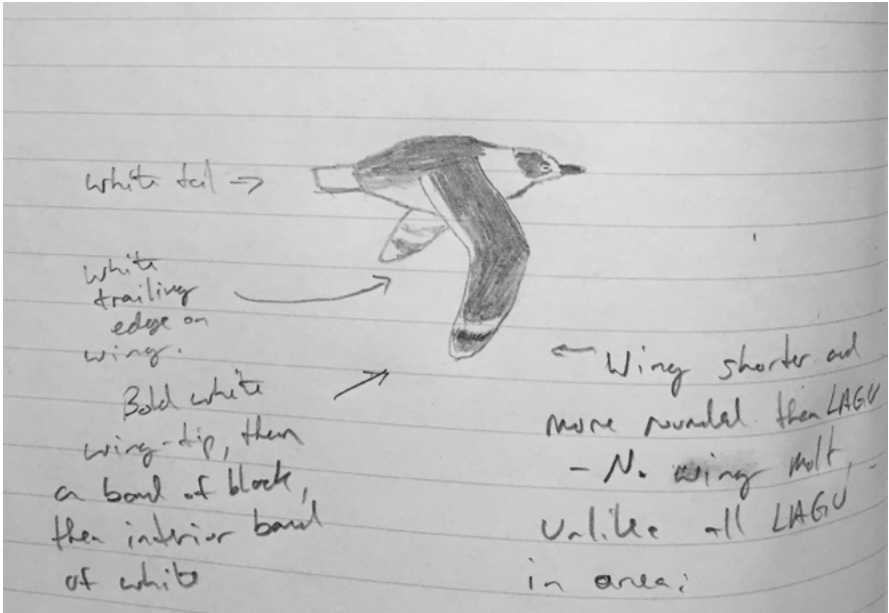 White tail →
White
trailing
edge on
wing.
Bold white
wing-tip, then
a band of black,
then interior band
of white
← Wing shorter and
more rounded than LAGU
- No wing molt,
unlike all LAGU
in area;